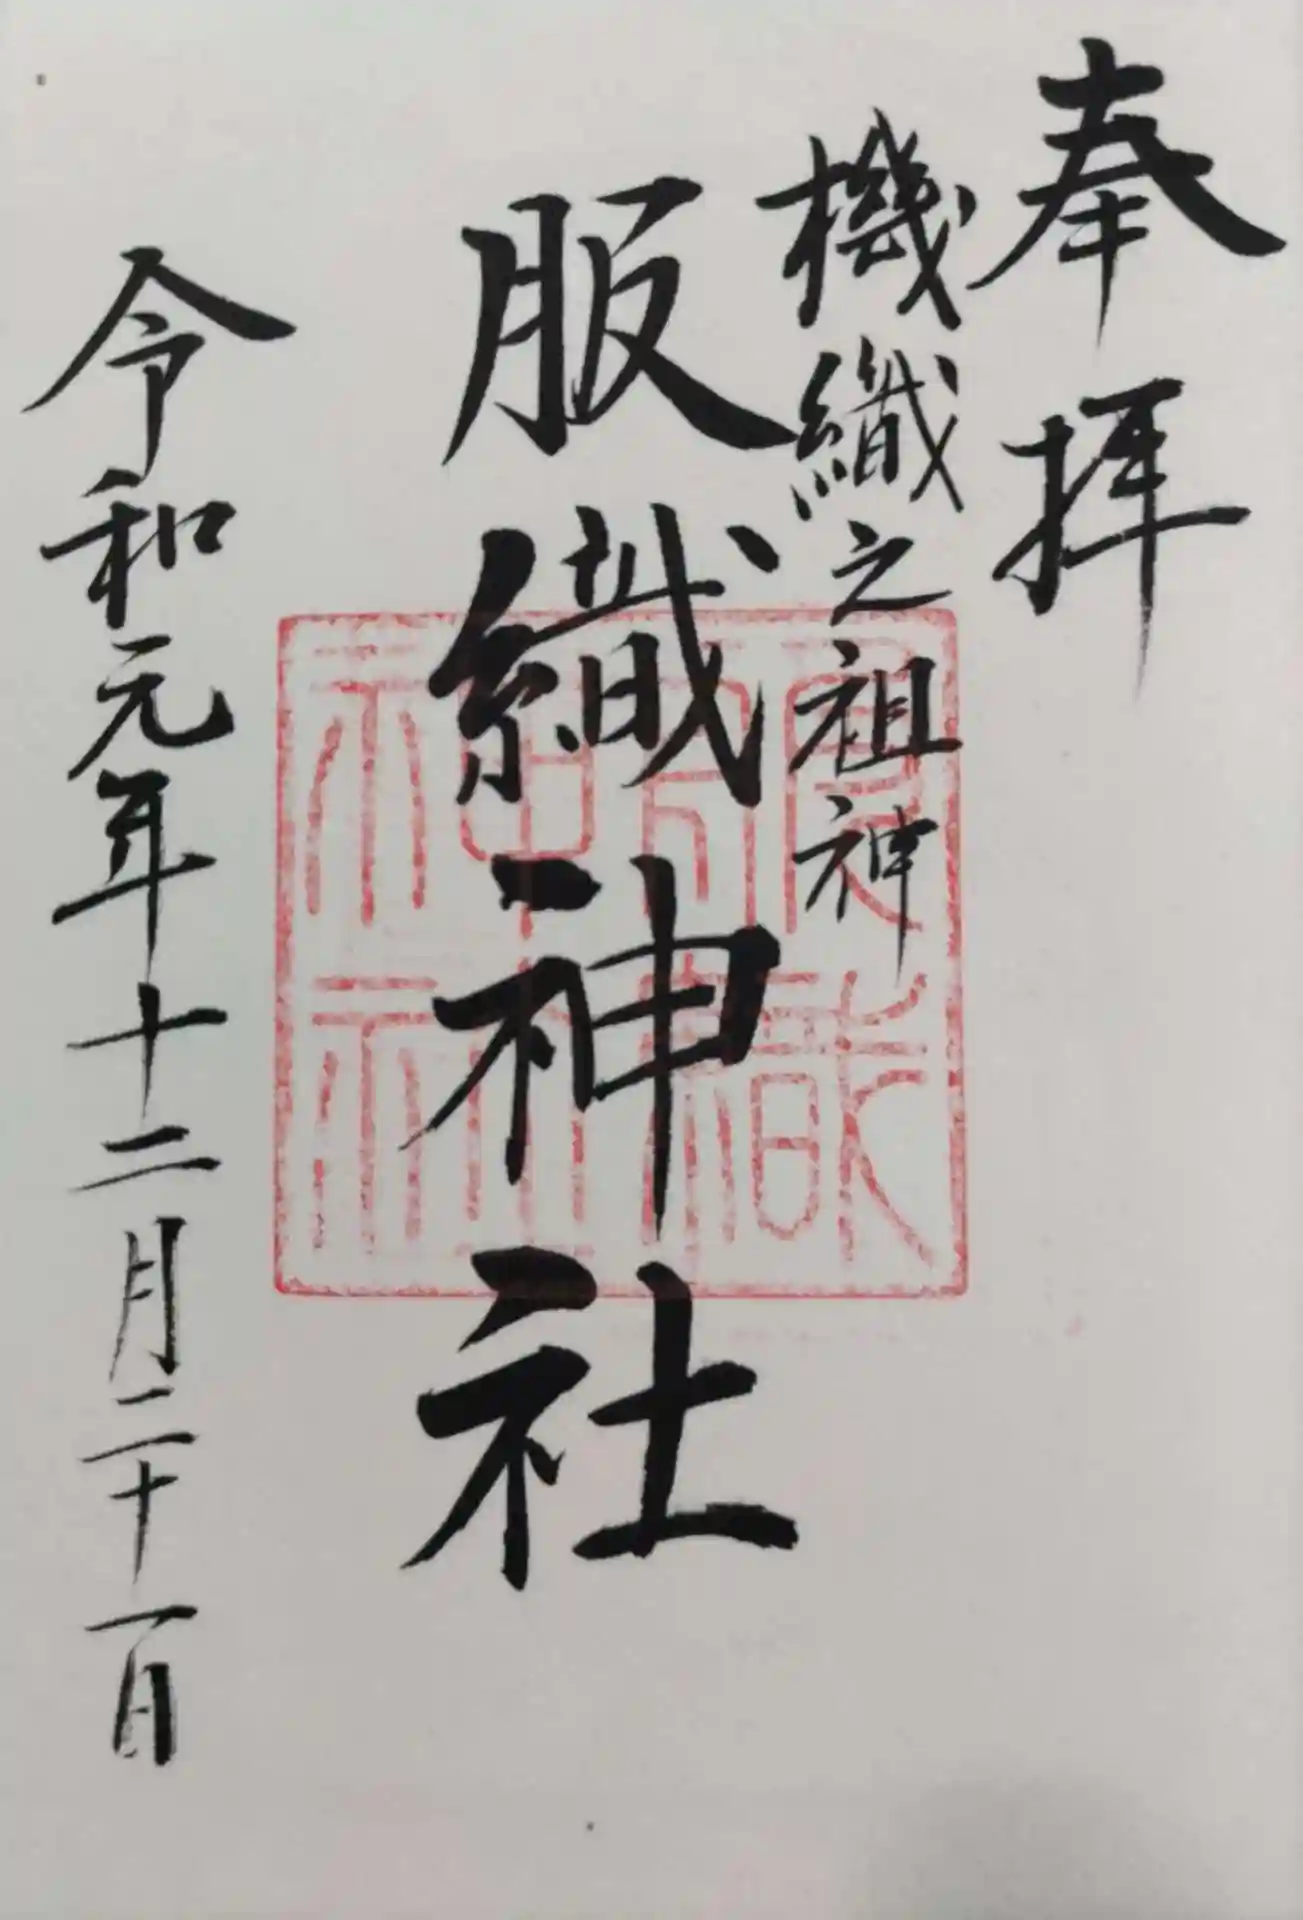 奉拝
機織之祖神
服織神社
服織神社
令和元年十二月二十一日